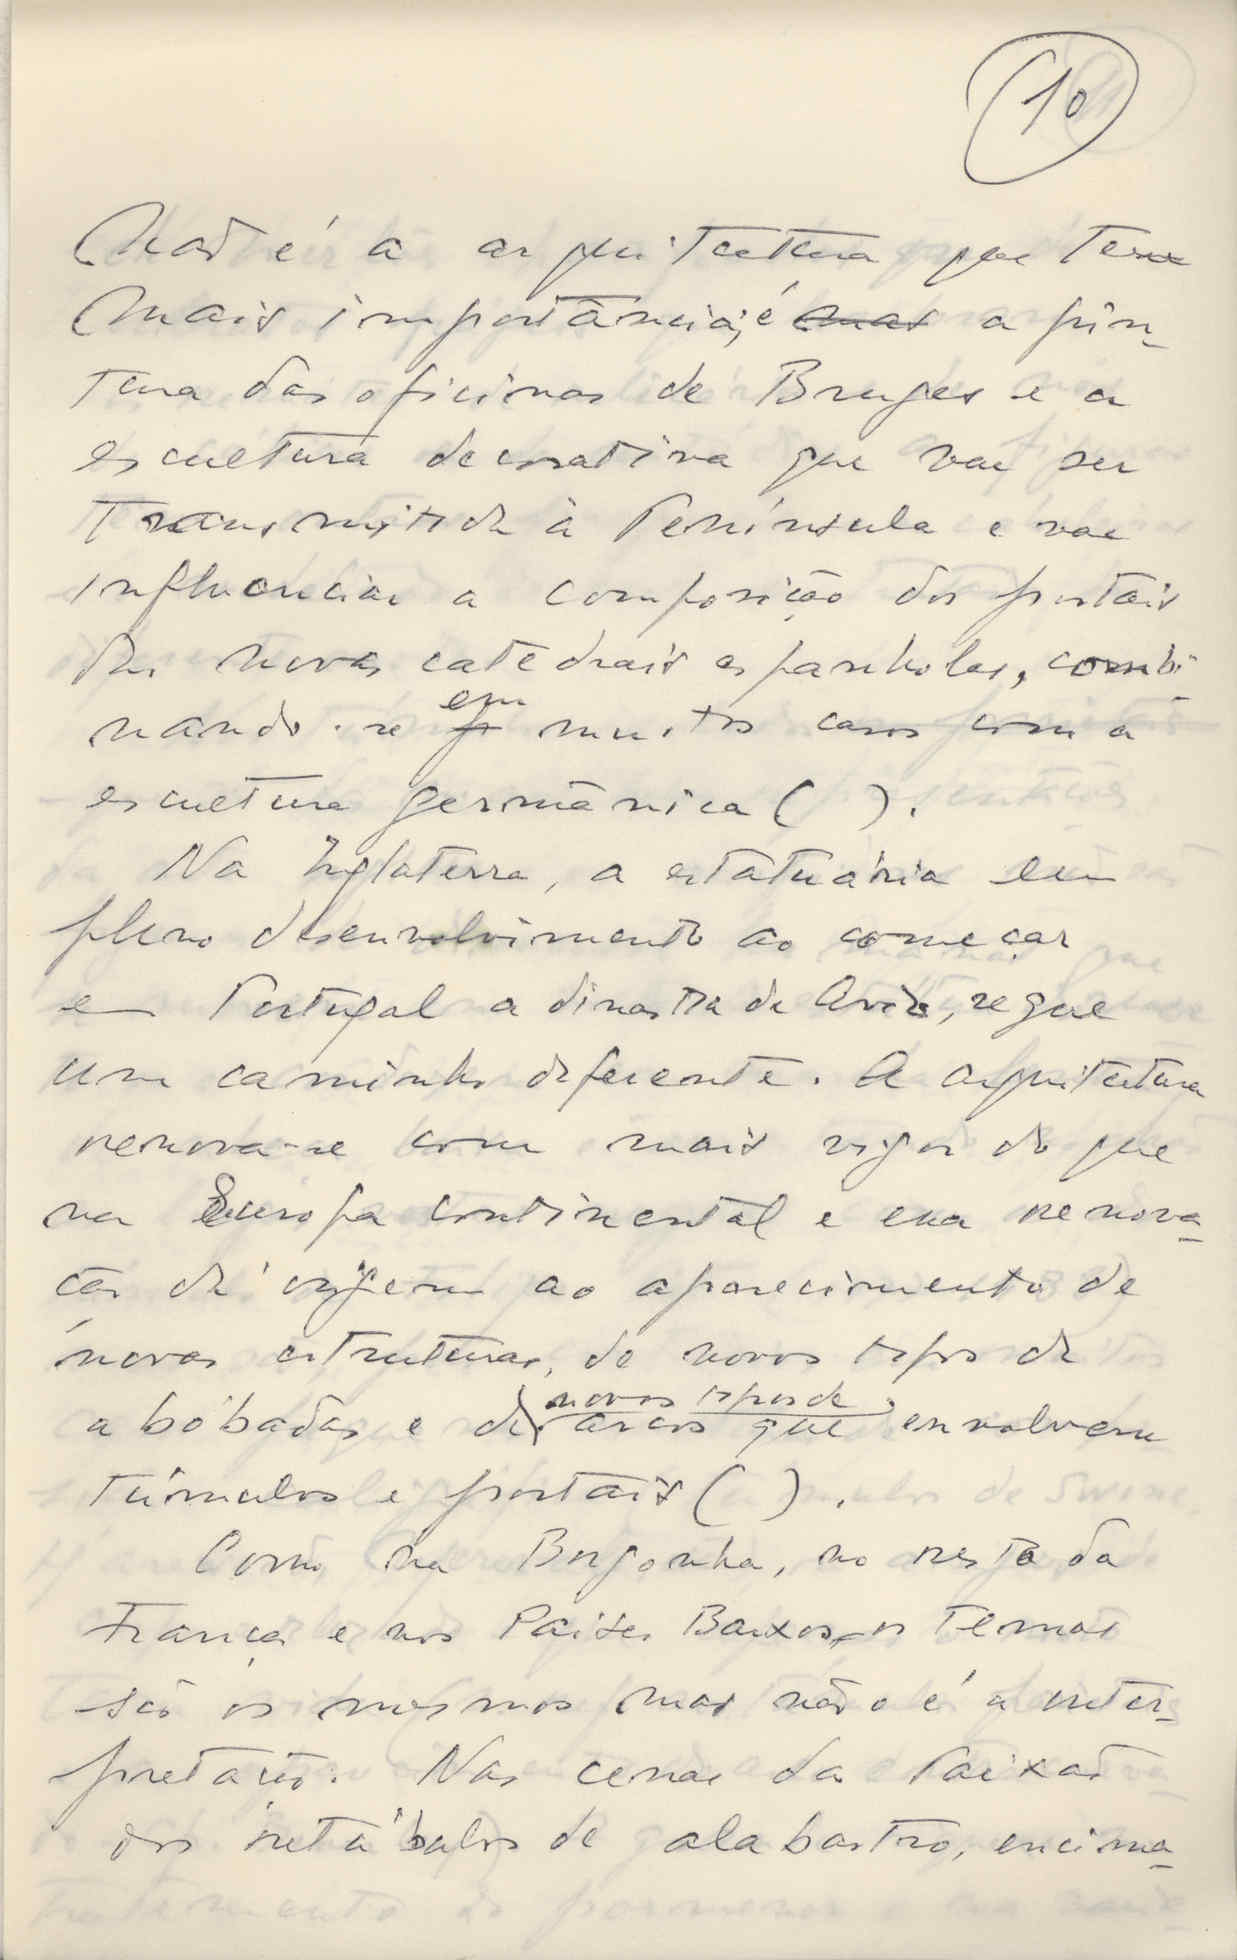 10
Não é a arquitectura que tem
mais importância; é mas a pin-
tura das oficinas de Bruges e a
escultura decorativa que vae ser
transmitida à Península e vae
influenciar a composição dos portais
das novas catedrais espanholas, combi-
nando-se em muitos casos com a
escultura germânica ( ).
Na Inglaterra, a estatuária em
pleno desenvolvimento ao começar
em Portugal a dinastia de Aviz, segue
um caminho diferente. A arquitectura
renova-se com mais vigor do que
na Europa continental e essa renova-
ção dá origem ao aparecimento de
novas estruturas, de novos tipos de
abóbadas e de novos tipos de arcos que envolvem
túmulos e portais ( ).
Como na Borgonha, no resto da
França e nos Paises Baixos, os temas
são os mesmos mas não o é a inter-
pretação. Nas cenas da Paixão
dos retábulos de alabastro, encima-